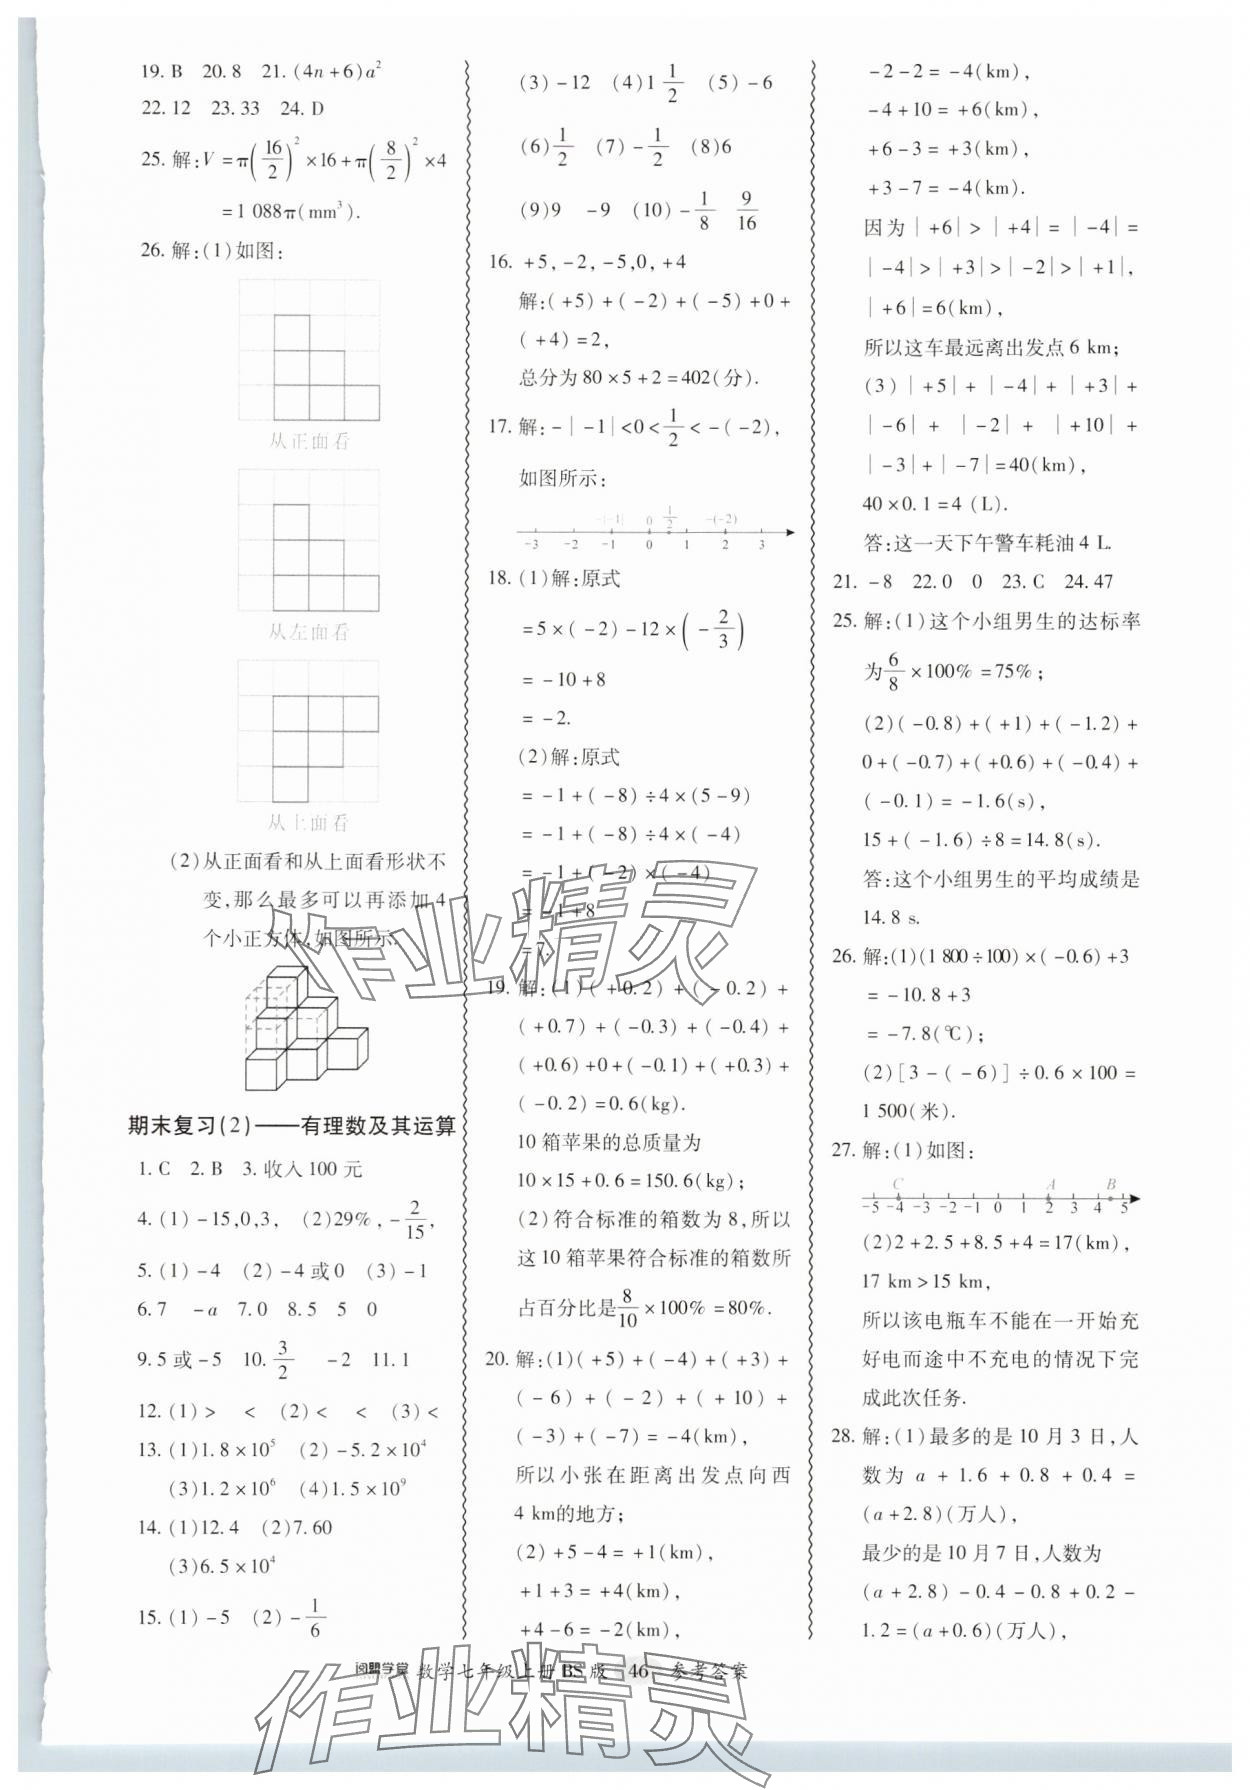 19. B　20. 8　21. (4n+6)a²
22. 12　23. 33　24. D
25. 解:V=π(16/2)²×16+π(8/2)²×4
=1 088π(mm³).
26. 解:(1)如图:
从正面看
从左面看
从上面看
(2)从正面看和从上面看形状不
变,那么最多可以再添加4
个小正方体,如图所示.
期末复习(2)——有理数及其运算
1. C　2. B　3. 收入100元
4. (1)-15,0,3,　(2)29%,-2/15,
5. (1)-4　(2)-4或0　(3)-1
6. 7　-a　7. 0　8. 5　5　0
9. 5或-5　10. 3/2　-2　11. 1
12. (1)>　<　(2)<　<　(3)<
13. (1)1.8×10⁵　(2)-5.2×10⁴
(3)1.2×10⁶　(4)1.5×10⁹
14. (1)12.4　(2)7.60
(3)6.5×10⁴
15. (1)-5　(2)-1/6
(3)-12　(4)1 1/2　(5)-6
(6)1/2　(7)-1/2　(8)6
(9)9　-9　(10)-1/8　9/16
16. +5,-2,-5,0,+4
解:(+5)+(-2)+(-5)+0+
(+4)=2,
总分为80×5+2=402(分).
17. 解:-|-1|<0<1/2<-(-2),
如图所示:
-|-1|　0　1/2　-(-2)
-3　-2　-1　0　1　2　3
18. (1)解:原式
=5×(-2)-12×(-2/3)
=-10+8
=-2.
(2)解:原式
=-1+(-8)÷4×(5-9)
=-1+(-8)÷4×(-4)
=-1+(-2)×(-4)
=-1+8
=7.
19. 解:(1)(+0.2)+(-0.2)+
(+0.7)+(-0.3)+(-0.4)+
(+0.6)+0+(-0.1)+(+0.3)+
(-0.2)=0.6(kg).
10箱苹果的总质量为
10×15+0.6=150.6(kg);
(2)符合标准的箱数为8,所以
这10箱苹果符合标准的箱数所
占百分比是8/10×100%=80%.
20. 解:(1)(+5)+(-4)+(+3)+
(-6)+(-2)+(+10)+
(-3)+(-7)=-4(km),
所以小张在距离出发点向西
4 km的地方;
(2)+5-4=+1(km),
+1+3=+4(km),
+4-6=-2(km),
-2-2=-4(km),
-4+10=+6(km),
+6-3=+3(km),
+3-7=-4(km).
因为|+6|>|+4|=|-4|=
|-4|>|+3|>|-2|>|+1|,
|+6|=6(km),
所以这车最远离出发点6 km;
(3)|+5|+|-4|+|+3|+
|-6|+|-2|+|+10|+
|-3|+|-7|=40(km),
40×0.1=4 (L).
答:这一天下午警车耗油4 L.
21. -8　22. 0　0　23. C　24. 47
25. 解:(1)这个小组男生的达标率
为6/8×100%=75%;
(2)(-0.8)+(+1)+(-1.2)+
0+(-0.7)+(+0.6)+(-0.4)+
(-0.1)=-1.6(s),
15+(-1.6)÷8=14.8(s).
答:这个小组男生的平均成绩是
14.8 s.
26. 解:(1)(1 800÷100)×(-0.6)+3
=-10.8+3
=-7.8(℃);
(2)[3-(-6)]÷0.6×100=
1 500(米).
27. 解:(1)如图:
C　A　B
-5　-4　-3　-2　-1　0　1　2　3　4　5
(2)2+2.5+8.5+4=17(km),
17 km>15 km,
所以该电瓶车不能在一开始充
好电而途中不充电的情况下完
成此次任务.
28. 解:(1)最多的是10月3日,人
数为a+1.6+0.8+0.4=
(a+2.8)(万人),
最少的是10月7日,人数为
(a+2.8)-0.4-0.8+0.2-
1.2=(a+0.6)(万人),
阅盟学堂　数学七年级上册 BS版　46　参考答案
作业精灵
作业精灵